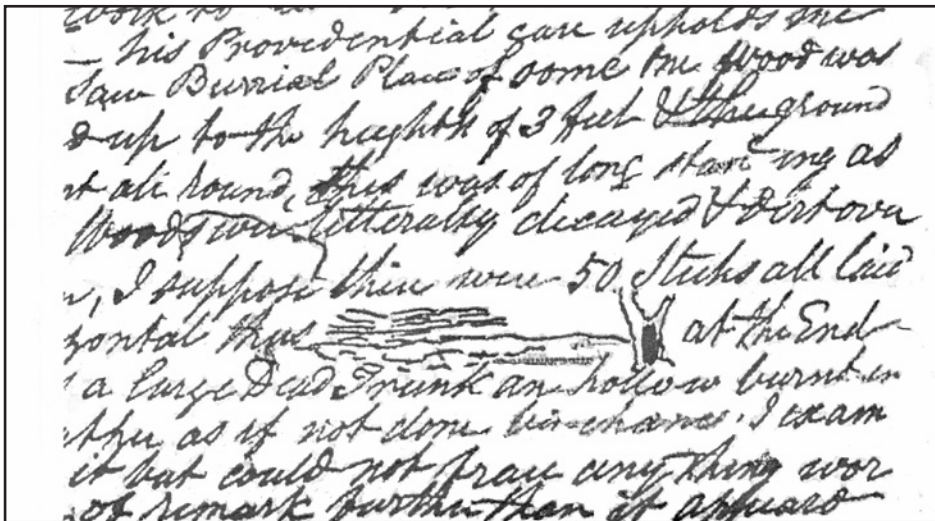 work to
— his Providential care upholds me
Saw Burrial Place of some one Wood was
d up to the heights of 3 feet & the ground
nt all round, this was of long stand ing as
Woods were litterally decayed & dirt over
, I suppose thier were 50 Sticks all laid
zontal thus at the End
a large Dead Trunk an hollow burnt in
ther as if not done bir chance. I exam
it but could not any thing wor
of remark further than it appeard